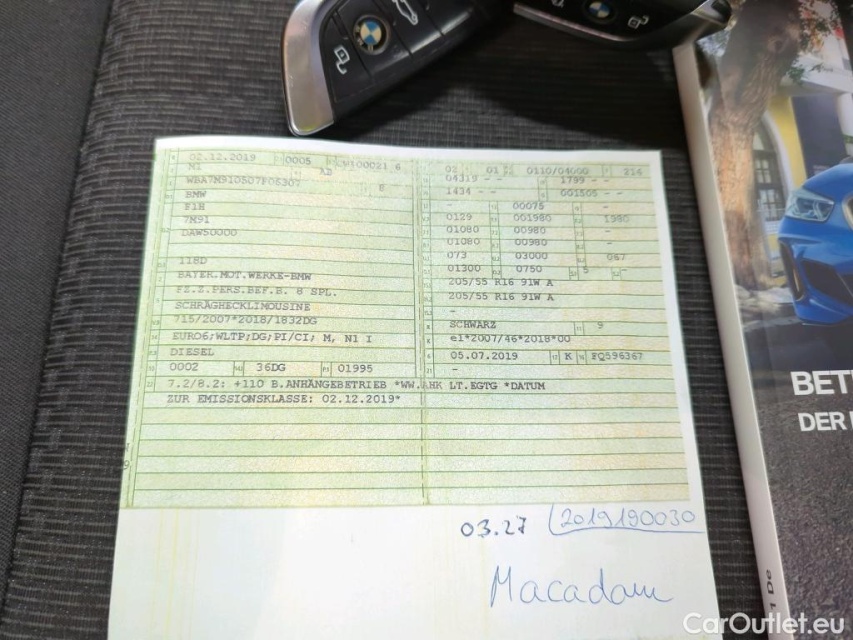 02.12.2019 0005
M1 AB
WBA7M910507F06307 8
BMW
F1H
7M91
DAW50000
118D
BAYER.MOT.WERKE-BMW
FZ.Z.PERS.BEF.B. 8 SPL.
SCHRÄGHECKLIMOUSINE
715/2007*2018/1832DG
EURO6;WLTP;DG;PI/CI; M, N1 I
DIESEL
0002 36DG 01995
02 01 0110/04000 214
04319 - - 1799 - -
1434 - - 001505 - -
- 00075 -
0129 001980 1980
01080 00980
01080 00980
073 03000 067
01300 0750 5 -
205/55 R16 91W A
205/55 R16 91W A
-
SCHWARZ 9
e1*2007/46*2018*00
05.07.2019 K FQ596367
-
7.2/8.2: +110 B.ANHÄNGEBETRIEB *WW.AHK LT.EGTG *DATUM
ZUR EMISSIONSKLASSE: 02.12.2019*
03.27 2019190030
Macadam
BET
DER
CarOutlet.eu